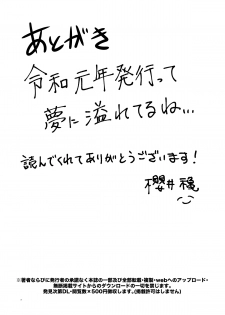 あとがき
令和元年発行って
夢に溢れてるね...
読んでくれてありがとうございます!
櫻井
※著者ならびに発行者の承諾なく本誌の一部及び全部転載・複製・webへのアップロード・
無断掲載サイトからのダウンロードの一切を禁じます。
発見次第DL・閲覧数×500円徴収します。(掲載許可はしません)